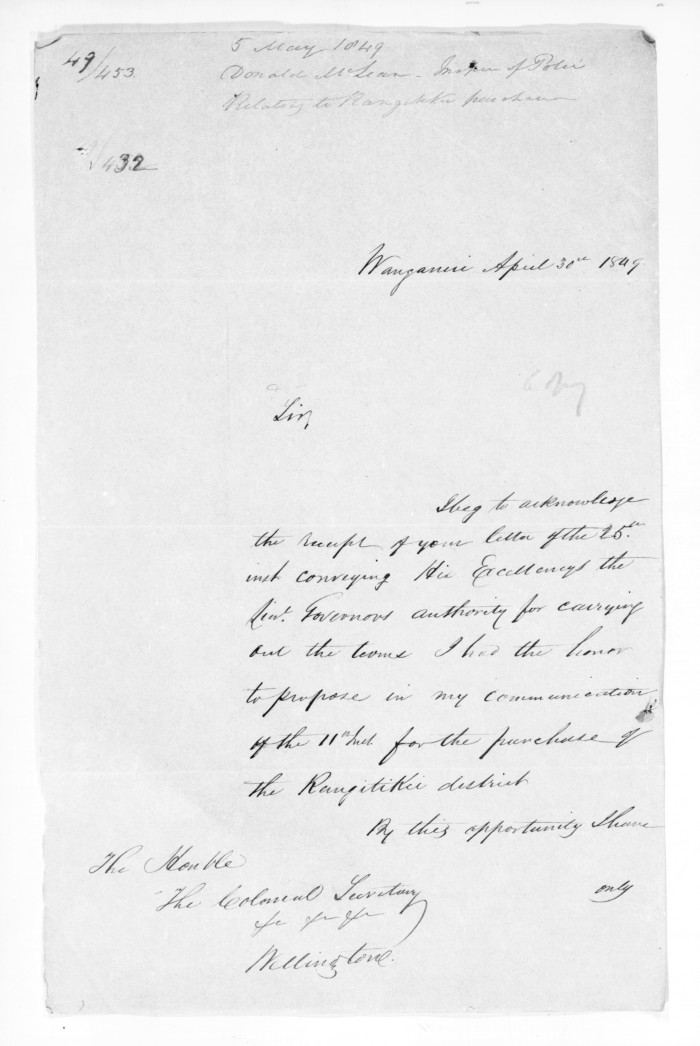 49/453
5 May 1849
Donald McLean - Inspr of Police
Relating to Rangitikie purchase
49/432
Wanganui April 30th 1849
Copy
Sir,
I beg to acknowledge
the receipt of your letter of the 25th
inst conveying His Excellencys the
Lieut. Governors authority for carrying
out the terms I had the honor
to propose in my communication
of the 11th Inst. for the purchase of
the Rangitikie district
By this opportunity I have
only
The Honble
The Colonial Secretary
&c &c &c
Wellington.